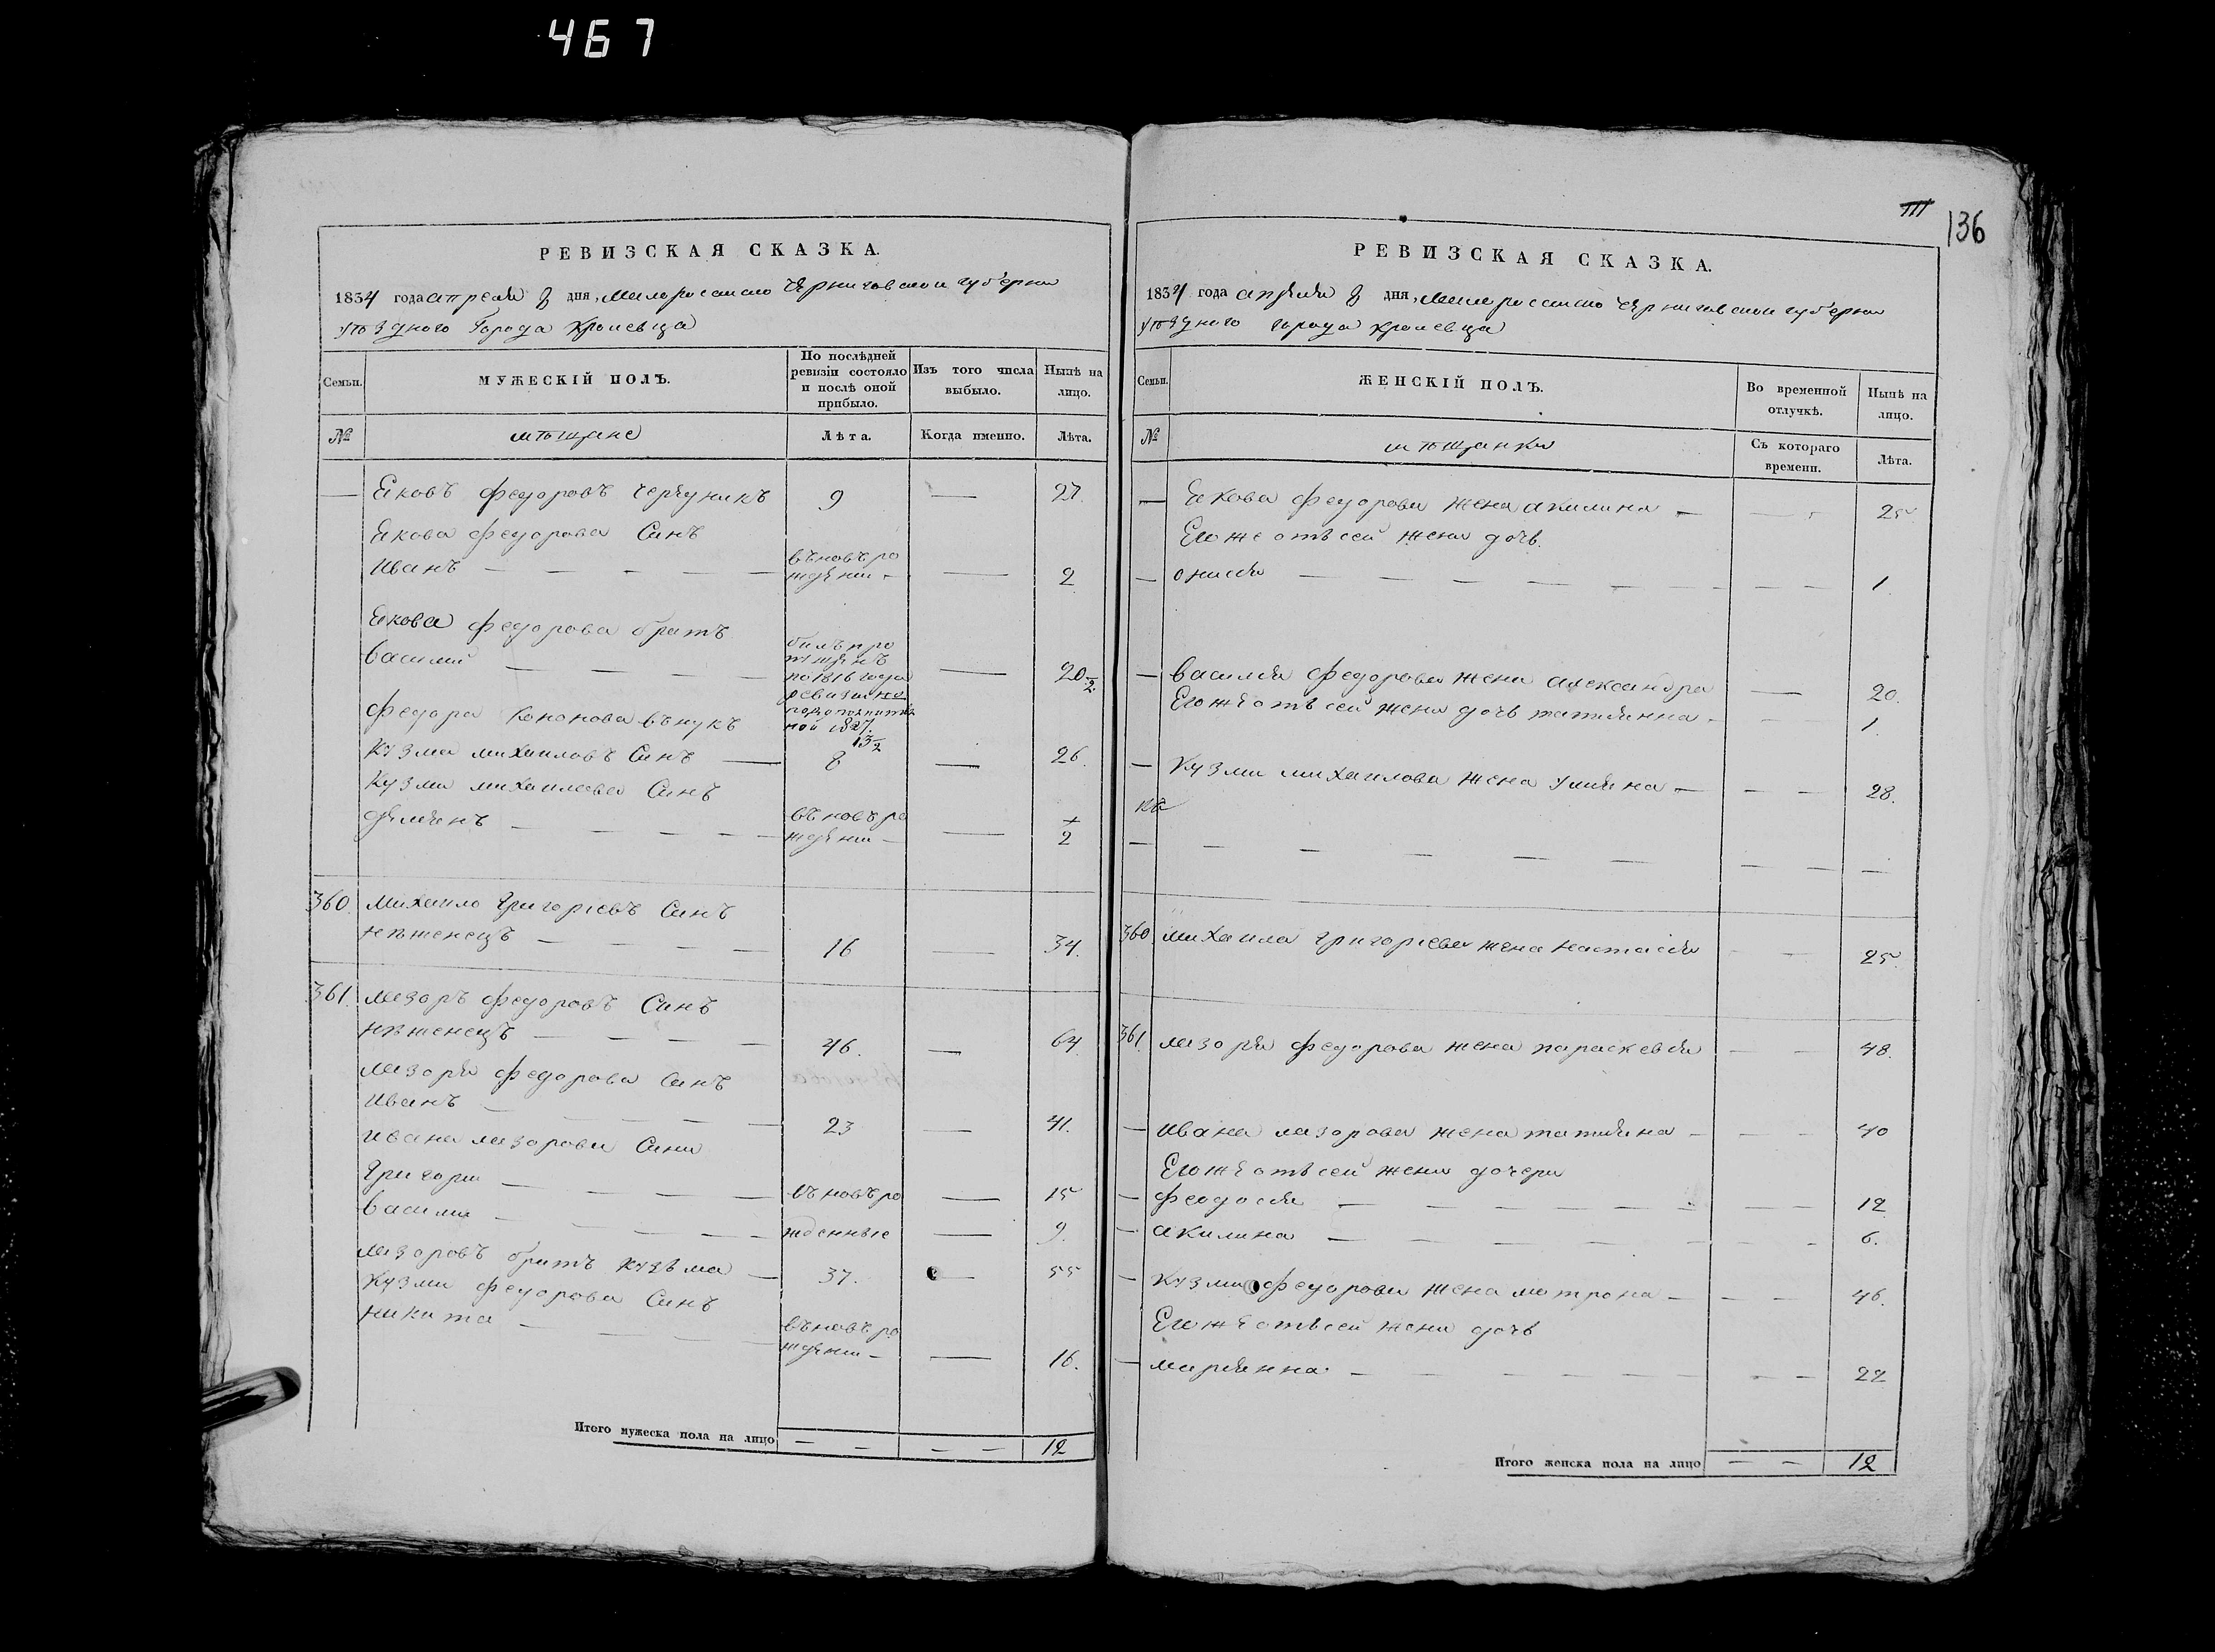 467
РЕВИЗСКАЯ СКАЗКА.
1834 года апреля 8 дня, Малоросийско Черниговской губерни
уѣздного Города Кролевца
Семьи.
МУЖЕСКІЙ ПОЛЪ.
По послѣдней ревизіи состояло и послѣ оной прибыло.
Изъ того числа выбыло.
Нынѣ на лицо.
№
мѣщане
Лѣта.
Когда именно.
Лѣта.
— Яковъ Федоровъ 9 — 27.
Якова Федорова Синъ
Иванъ — — — — — въновъро
жденни — — 2
Якова Федорова братъ
Василий — — — билъ про
пищенъ
по 1816 года — 20 ½
ревизии
Федора Кононова внукъ
ной 1827.
13 ½
Кузма Михаиловъ Синъ — 8 — 26.
Кузми Михаилова Синъ
Демянъ — — — — въновъро
жденни — — ½
360. Михаило Григоріевъ Синъ
Нѣженецъ — — — — 16 — 34.
361. Лазоръ Федоровъ Синъ
Нѣженецъ — — — — 46. — 64
Лазоря Федорова Синъ
Иванъ — — — — 23 — 41.
Ивана Лазорова Сини
Григори — — — — въновъро — 15
Василии — — — — жденные — 9.
Лазоровъ братъ Кузьма — 37. — 55
Кузми Федорова Синъ
Никита — — — — въновъро
жденни — — 16.
Итого мужеска пола на лицо — — — — 12
111
136
РЕВИЗСКАЯ СКАЗКА.
1834 года апреля 8 дня, Малоросийско Черниговской губерни
уѣздного города Кролевца
Семьи.
ЖЕНСКІЙ ПОЛЪ.
Во временной отлучкѣ.
Нынѣ на лицо.
№
мѣщанки
Съ котораго времени.
Лѣта.
— Якова Федорова жена Акилина — — — 25
Егоже отъ сей жени дочь
— Онися — — — — — — — — 1.
— Василия Федорова жена Александра — 20.
Егоже отъ сей жени дочь Татиянна — — 1.
— Кузми Михаилова жена Улияна — — — 28.
— — — — — — — — —
360 Михаила Григоріева жена Настасия — — 25.
361. Лазоря Федорова жена Параскевия — — 48.
— Ивана Лазорова жена Татияна — — — 40
Егоже отъ сей жени дочери
— Феодосия — — — — — — — 12
— Акилина — — — — — — — 6.
— Кузми Федорова жена Мотрона — — — 46.
Егоже отъ сей жени дочь
— Мариянна — — — — — — — 22
Итого женска пола на лицо — — 12